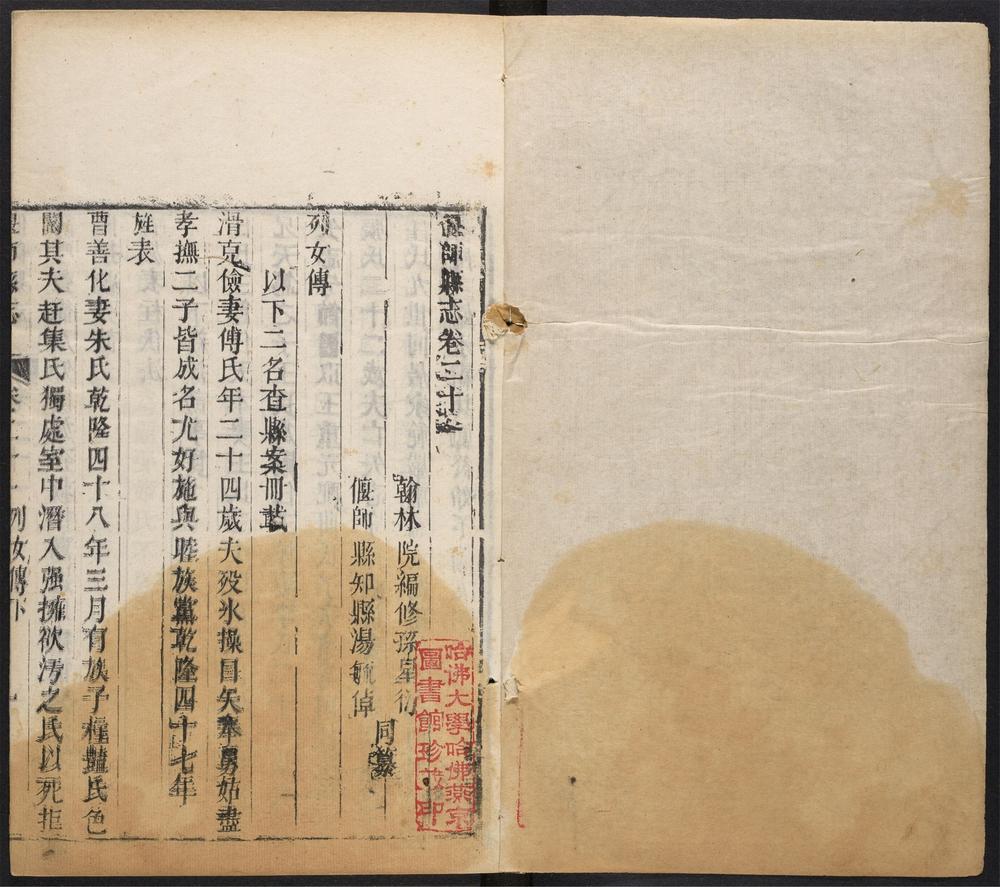 偃師縣志卷二十
翰林院編修孫星衍
偃師縣知縣湯毓倬
同纂
列女傳
以下二名查縣案冊載
滑克儉妻傅氏年二十四歲夫歿氷操自矢奉舅姑盡
孝撫二子皆成名尤好施與睦族黨乾隆四十七年
旌表
曹善化妻朱氏乾隆四十八年三月有族子種豔氏色
闞其夫赶集氏獨處室中潛入强擁欲汚之氏以死拒
偃師縣志
列女傳下
哈佛大學哈佛燕京
圖書館珍藏印